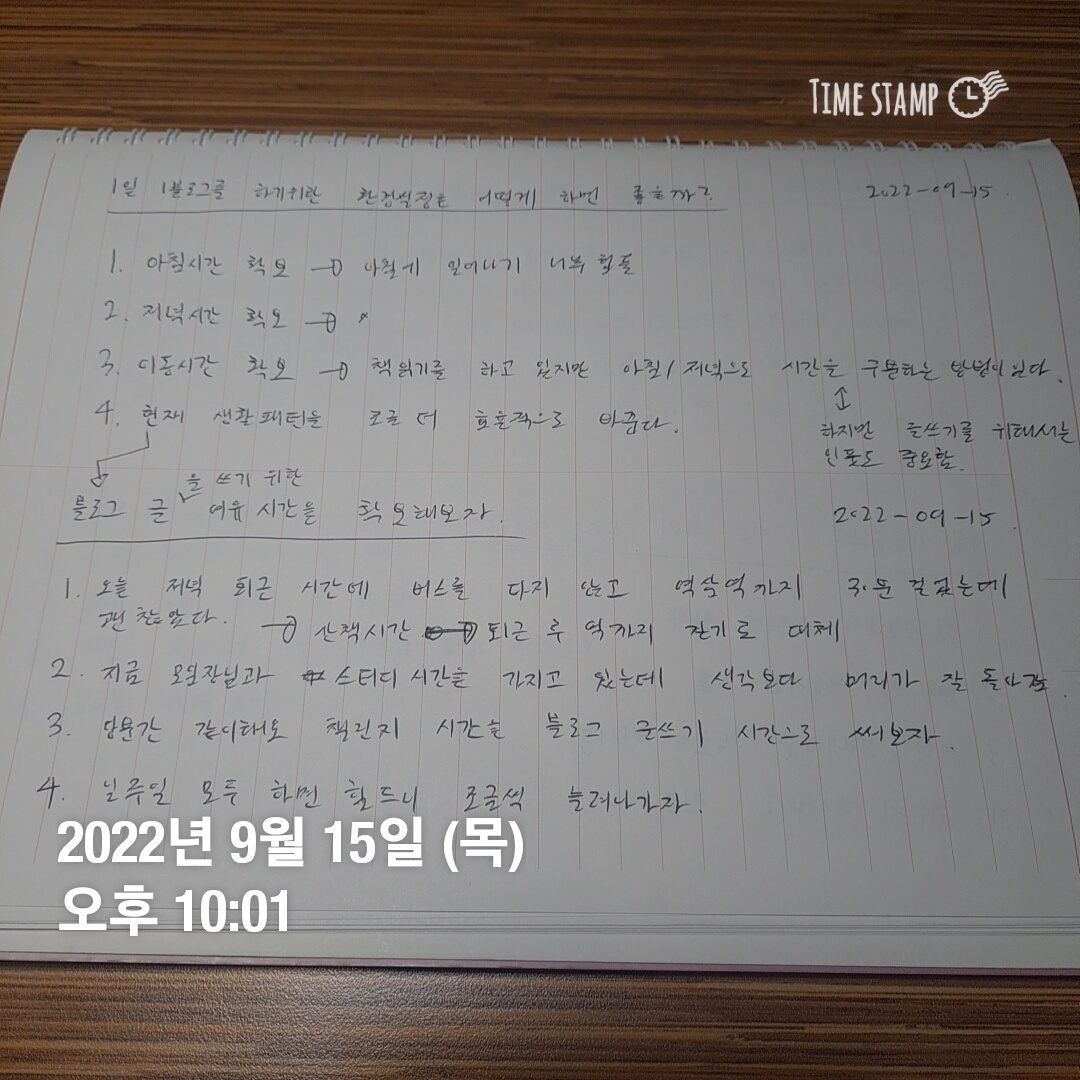 TIME STAMP
1일 1블로그를 하기위한 환경설정은 어떻게 하면 좋을까? 2022-09-15.
1. 아침시간 확보 → 나한테 일어나기 너무 힘듦
2. 저녁시간 확보 → *
3. 이동시간 확보 → 책읽기를 하고 있지만 아침/저녁으로 시간을 구분하는 방법이 있다.
4. 현재 생활패턴을 조금 더 효율적으로 바꾼다.
하지만 글쓰기를 위해서는
인풋도 중요함.
을 쓰기 위한
블로그 글 여유 시간을 확보해보자. 2022-09-15.
1. 오늘 저녁 퇴근 시간에 버스를 타지 않고 역삼역까지 30분 걸었는데
괜찮았다. → 산책시간 퇴근 후 역까지 걷기로 대체
2. 지금 스터디 시간을 가지고 있는데 생각보다 머리가 잘 돌아감.
3. 같이해요 챌린지 시간을 블로그 글쓰기 시간으로 써보자.
4. 일주일 모두 하면 힘드니 조금씩 늘려나가자.
2022년 9월 15일 (목)
오후 10:01